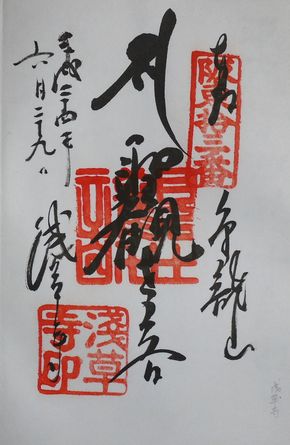 奉拝
坂東拾三番
金龍山
聖観世音
浅草寺
平成二十四年
六月二十九日
淺草
寺印
浅草寺